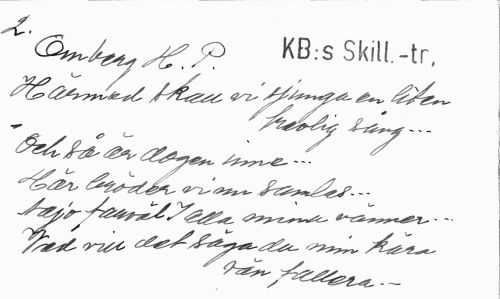 2.
Omberg H. P. KB:s Skill.-tr,
Härmed skall vi sjunga en liten
trevlig sång...
Och så är dagen inne...
Här bröder vi nu samlas...
Aajo farväl I alla mina vänner...
Vad vill det säga du min kära
vän fallera.-